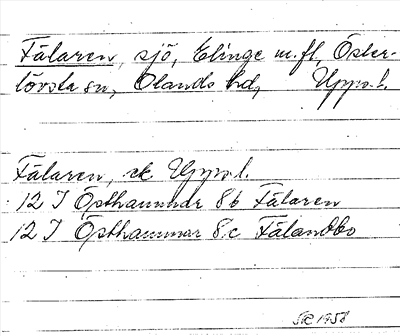 Fälaren, sjö, Elinge m.fl, Öster-
lövsta sn, Olands hd, Upps.l.
Fälaren, ek Upps.l.
12 I Östhammar 8b Fälaren
12 I Östhammar 8c Fälandbo
1958